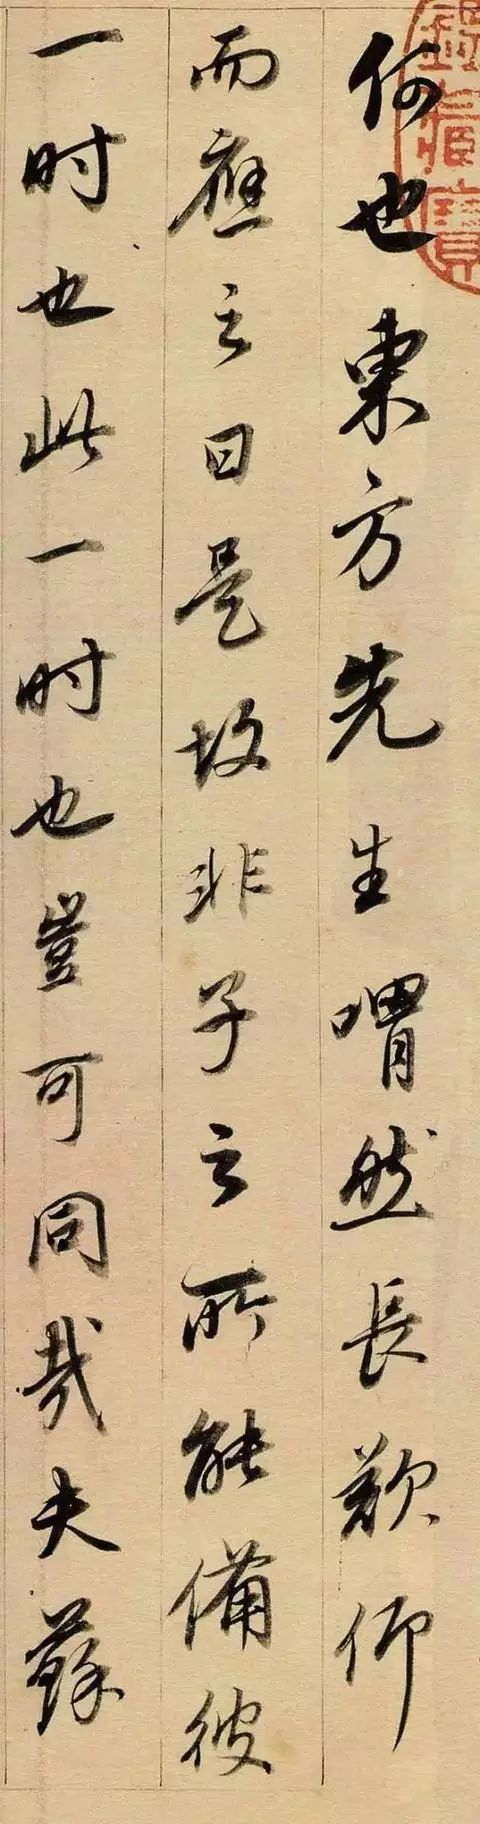 何也東方先生喟然長歎仰
而應之曰是故非子之所能備彼
一時也此一時也豈可同哉夫蘇